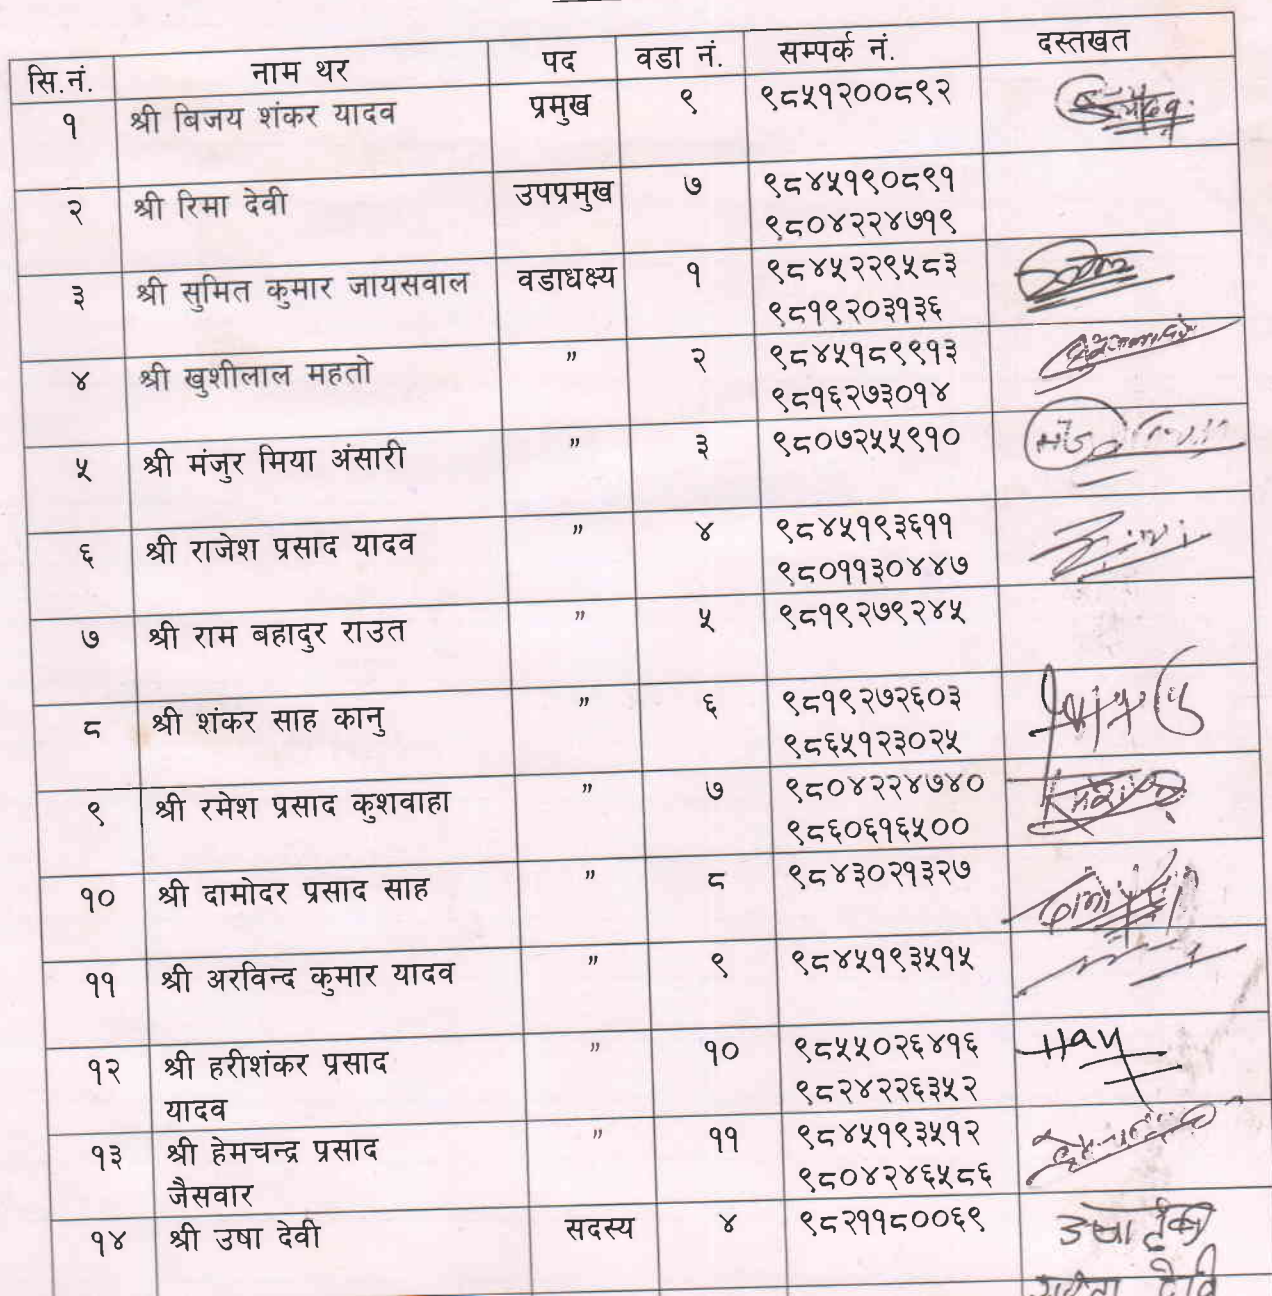 सि.नं. नाम थर पद वडा नं. सम्पर्क नं. दस्तखत
१ श्री बिजय शंकर यादव प्रमुख ९ ९८५१२००८९२
२ श्री रिमा देवी उपप्रमुख ७ ९८४५१९०८९१
९८०४२२४७१९
३ श्री सुमित कुमार जायसवाल वडाधक्ष्य १ ९८४५२२९५८३
९८१९२०३१३६
४ श्री खुशीलाल महतो ” २ ९८४५१८९९१३
९८१६२७३०१४
५ श्री मंजुर मिया अंसारी ” ३ ९८०७२५५९१०
६ श्री राजेश प्रसाद यादव ” ४ ९८४५१९३६११
९८०११३०४४७
७ श्री राम बहादुर राउत ” ५ ९८१९२७९२४५
८ श्री शंकर साह कानु ” ६ ९८१९२७२६०३
९८६५१२३०२५
९ श्री रमेश प्रसाद कुशवाहा ” ७ ९८०४२२४७४०
९८६०६१६५००
१० श्री दामोदर प्रसाद साह ” ८ ९८४३०२१३२७
११ श्री अरविन्द कुमार यादव ” ९ ९८४५१९३५१५
१२ श्री हरीशंकर प्रसाद ” १० ९८५५०२६४१६
यादव ९८२४२२६३५२
१३ श्री हेमचन्द्र प्रसाद ” ११ ९८४५१९३५१२
जैसवार ९८०४२४६५८६
१४ श्री उषा देवी सदस्य ४ ९८२११८००६९ उषा देवी
देवि